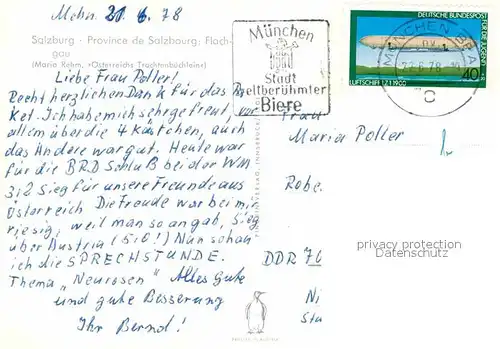 Mchn. 21. 6. 78
Salzburg - Province de Salzbourg: Flach-
gau
(Maria Rehm, »Österreichs Trachtenbüchlein«)
Liebe Frau Poller!
Recht herzlichen Dank für das Pa
ket. Ich habe mich sehr gefreut, vor
allem über die 4 Kästchen, auch
das Andere war gut. Heute war
für die BRD Schluß bei der WM
3:2 Sieg für unsere Freunde aus
Österreich Die Freude war bei mir
riesig, weil man so angab, Sieg
über Austria (5:0!) Nun schau
ich die SPRECHSTUNDE.
Thema „Neurosen" Alles Gute
und gute Besserung
Ihr Bernd!
München
Stadt
weltberühmter
Biere
DEUTSCHE BUNDESPOST
FÜR DIE JUGEND
LUFTSCHIFF LZ 1 1900
40
MÜNCHEN
22.6.78
Frau
Maria Poller
Robe
DDR 70
Ni
Sta
privacy protection
Datenschutz
INNSBRUCK